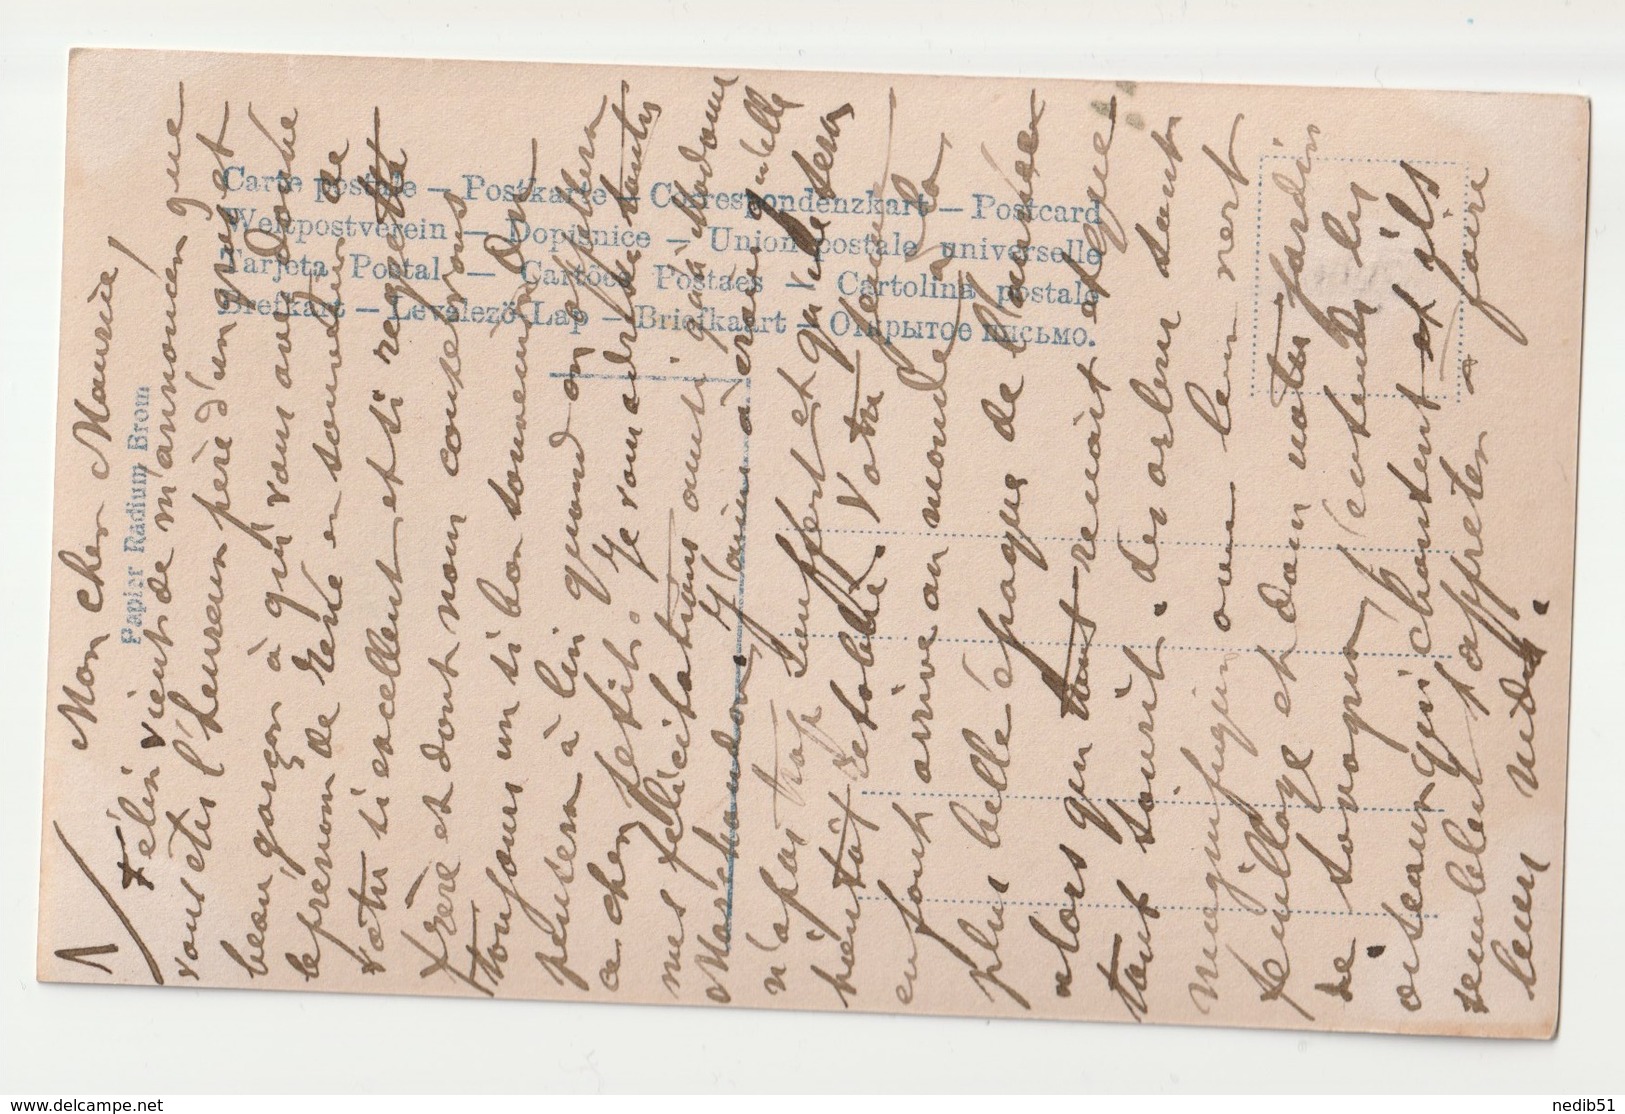 1/ Mon cher Maurice,
Félix vient de m'annoncer que
vous êtes l'heureux père d'un gus et
beau garçon à qui vous avez donné
le prénom de René en souvenir de
votre si excellent et si regretté
frère et dont nous conservons
toujours un si bon souvenir. On
pensera à lui quand on appellera
ce cher petit. Je vous adresse toutes
mes félicitations ainsi qu'à Madame
Marchandon. J'aime à croire qu'elle
n'a pas trop souffert et qu'elle sera
bientôt rétablie. Votre
enfant arrive au monde à la
plus belle époque de l'année
alors que tout renaît et que
tout sourit. Les arbres sont
magnifiques avec leur vert
feuillage et dans notre jardin
de Longpré j'entends les
oiseaux qui chantent et ils
semblent s'apprêter à faire
leurs nids.
Papier Radium Brom
Carte postale — Postkarte — Correspondenzkart — Postcard
Weltpostverein — Dopisnice — Union postale universelle
Tarjeta Postal — Cartões Postaes — Cartolina postale
Brefkart — Levelező-Lap — Briefkaart — Открытое письмо.
www.delcampe.net
nedib51